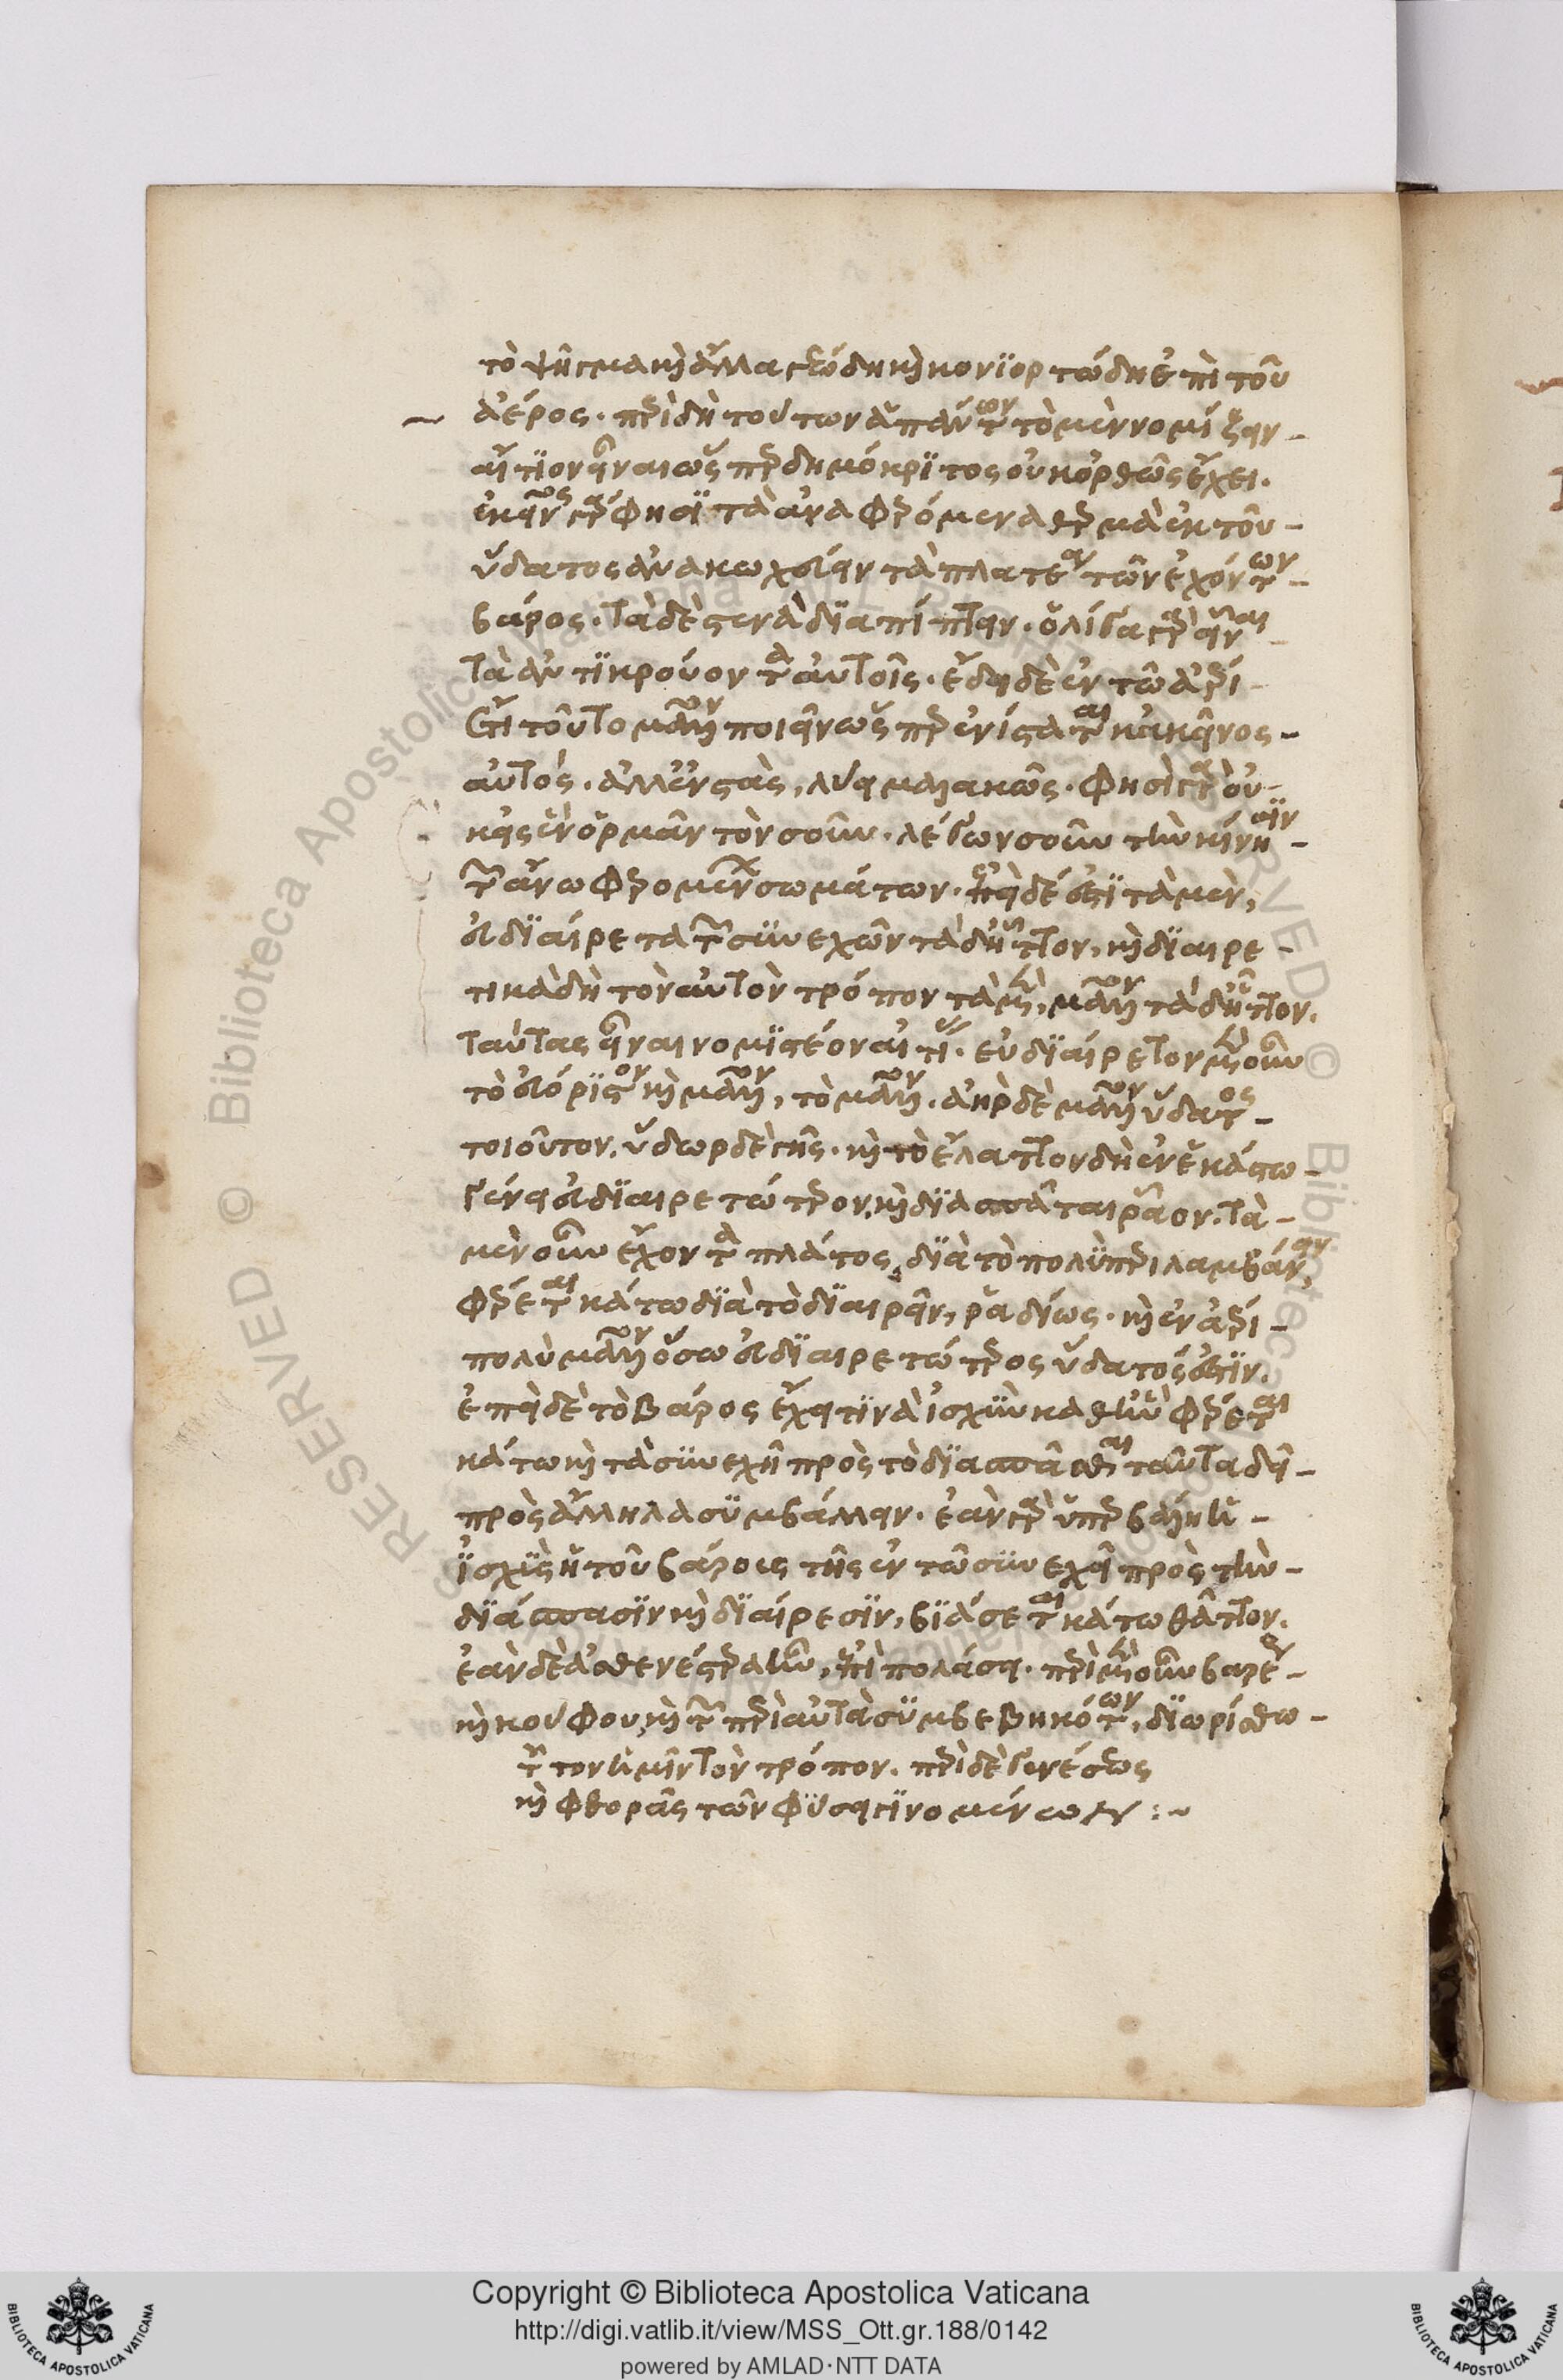 τὸ ψῆγμα καὶ ἄλλα γεώδη καὶ κονιορτώδη ἐπὶ τοῦ
ἀέρος. περὶ δὴ τούτων ἁπάντων τὸ μὲν νομίζειν
αἴτιον εἶναι ὥσπερ δημόκριτος οὐκ ὀρθῶς ἔχει.
ἐκεῖνος γάρ φησϊ τὰ ἄνα φερόμενα θερμὰ ἐκ τοῦ
ὕδατος ἀνακωχεύειν τὰ πλατέα τῶν ἐχόντων
βάρος. τὰ δὲ στενὰ διαπίπτειν. ὀλίγα γὰρ εἶναι
τὰ ἀντικρούοντα αὐτοῖς. ἔδει δὲ ἐν τῶ ἀέρι
ἔτι τοῦτο μᾶλλον ποιεῖν ὥσπερ ἐνίσταται κἀκεῖνος
αὐτός. ἀλλ' ἐνστὰς, λύει μαλακῶς. φησὶ γὰρ οὐκ
εἰς ἓν ὁρμᾶν τὸν σοῦν. λέγων σοῦν τὴν κίνησιν
τῶν ἄνω φερομένων σωμάτων. ἐπεὶ δέ ἐστι τὰ μὲν,
εὐδιαίρετα τῶν συνεχῶν τὰ δὴ ἧττον, καὶ διαιρε
τικὰ δὴ τὸν αὐτὸν τρόπον τὰ μὲν, μᾶλλον τὰ δὴ ἧττον.
ταύτας εἶναι νομιστέον αἰτίας. εὐδιαίρετον μὲν οὖν
τὸ εὐόριστον καὶ μᾶλλον, τὸ μᾶλλον. ἀὴρ δὲ μᾶλλον ὕδατος
τοιοῦτον. ὕδωρ δὲ γῆς. καὶ τὸ ἔλαττον δὴ ἐν ἑκάστω
γένει εὐδιαιρετώτερον, καὶ διασπᾶται ῥᾶον. τὰ
μὲν οὖν ἔχοντα πλάτος, διὰ τὸ πολὺ περιλαμβάνειν,
φέρεται κάτω διὰ τὸ διαιρεῖν, ῥαδίως. καὶ ἐν ἀέρι
πολὺ μᾶλλον ὅσω εὐδιαιρετώτερος ὕδατός ἐστιν.
ἐπεὶ δὲ τὸ βάρος ἔχει τινὰ ἰσχὺν καθ' ἣν φέρεται
κάτω καὶ τὰ συνεχῆ πρὸς τὸ διασπᾶσθαι ταῦτα δεῖ
πρὸς ἄλληλα συμβάλλειν. ἐὰν γὰρ ὑπερβάλλη ἡ
ἰσχὺς ἡ τοῦ βάρους τῆς ἐν τῶ συνεχεῖ πρὸς τὴν
διάσπασιν καὶ διαίρεσιν, βιάσεται κάτω θᾶττον.
ἐὰν δὲ ἀσθενέστερα ἦν, ἐπιπολάσει. περὶ μὲν οὖν βαρέος
καὶ κούφου, καὶ τῶν περὶ αὐτὰ συμβεβηκότων, διωρίσθω
τοῦτον ἡμῖν τὸν τρόπον. περὶ δὲ γενέσεως
καὶ φθορᾶς τῶν φύσει γινομένων :~
Copyright © Biblioteca Apostolica Vaticana
http://digi.vatlib.it/view/MSS_Ott.gr.188/0142
powered by AMLAD·NTT DATA